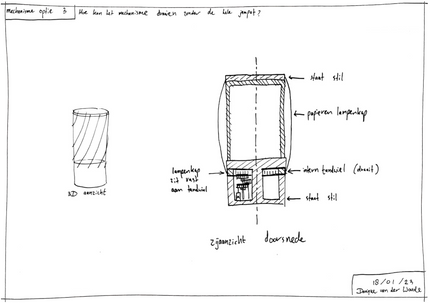 mechanisme optie 3
Hoe kan het mechanisme draaien zonder de hele lamp?
staat stil
papieren lampenkap
lampenkap
zit vast
aan tandwiel
intern tandwiel (draait)
staat stil
3D aanzicht
zijaanzicht doorsnede
18/01/24
van der